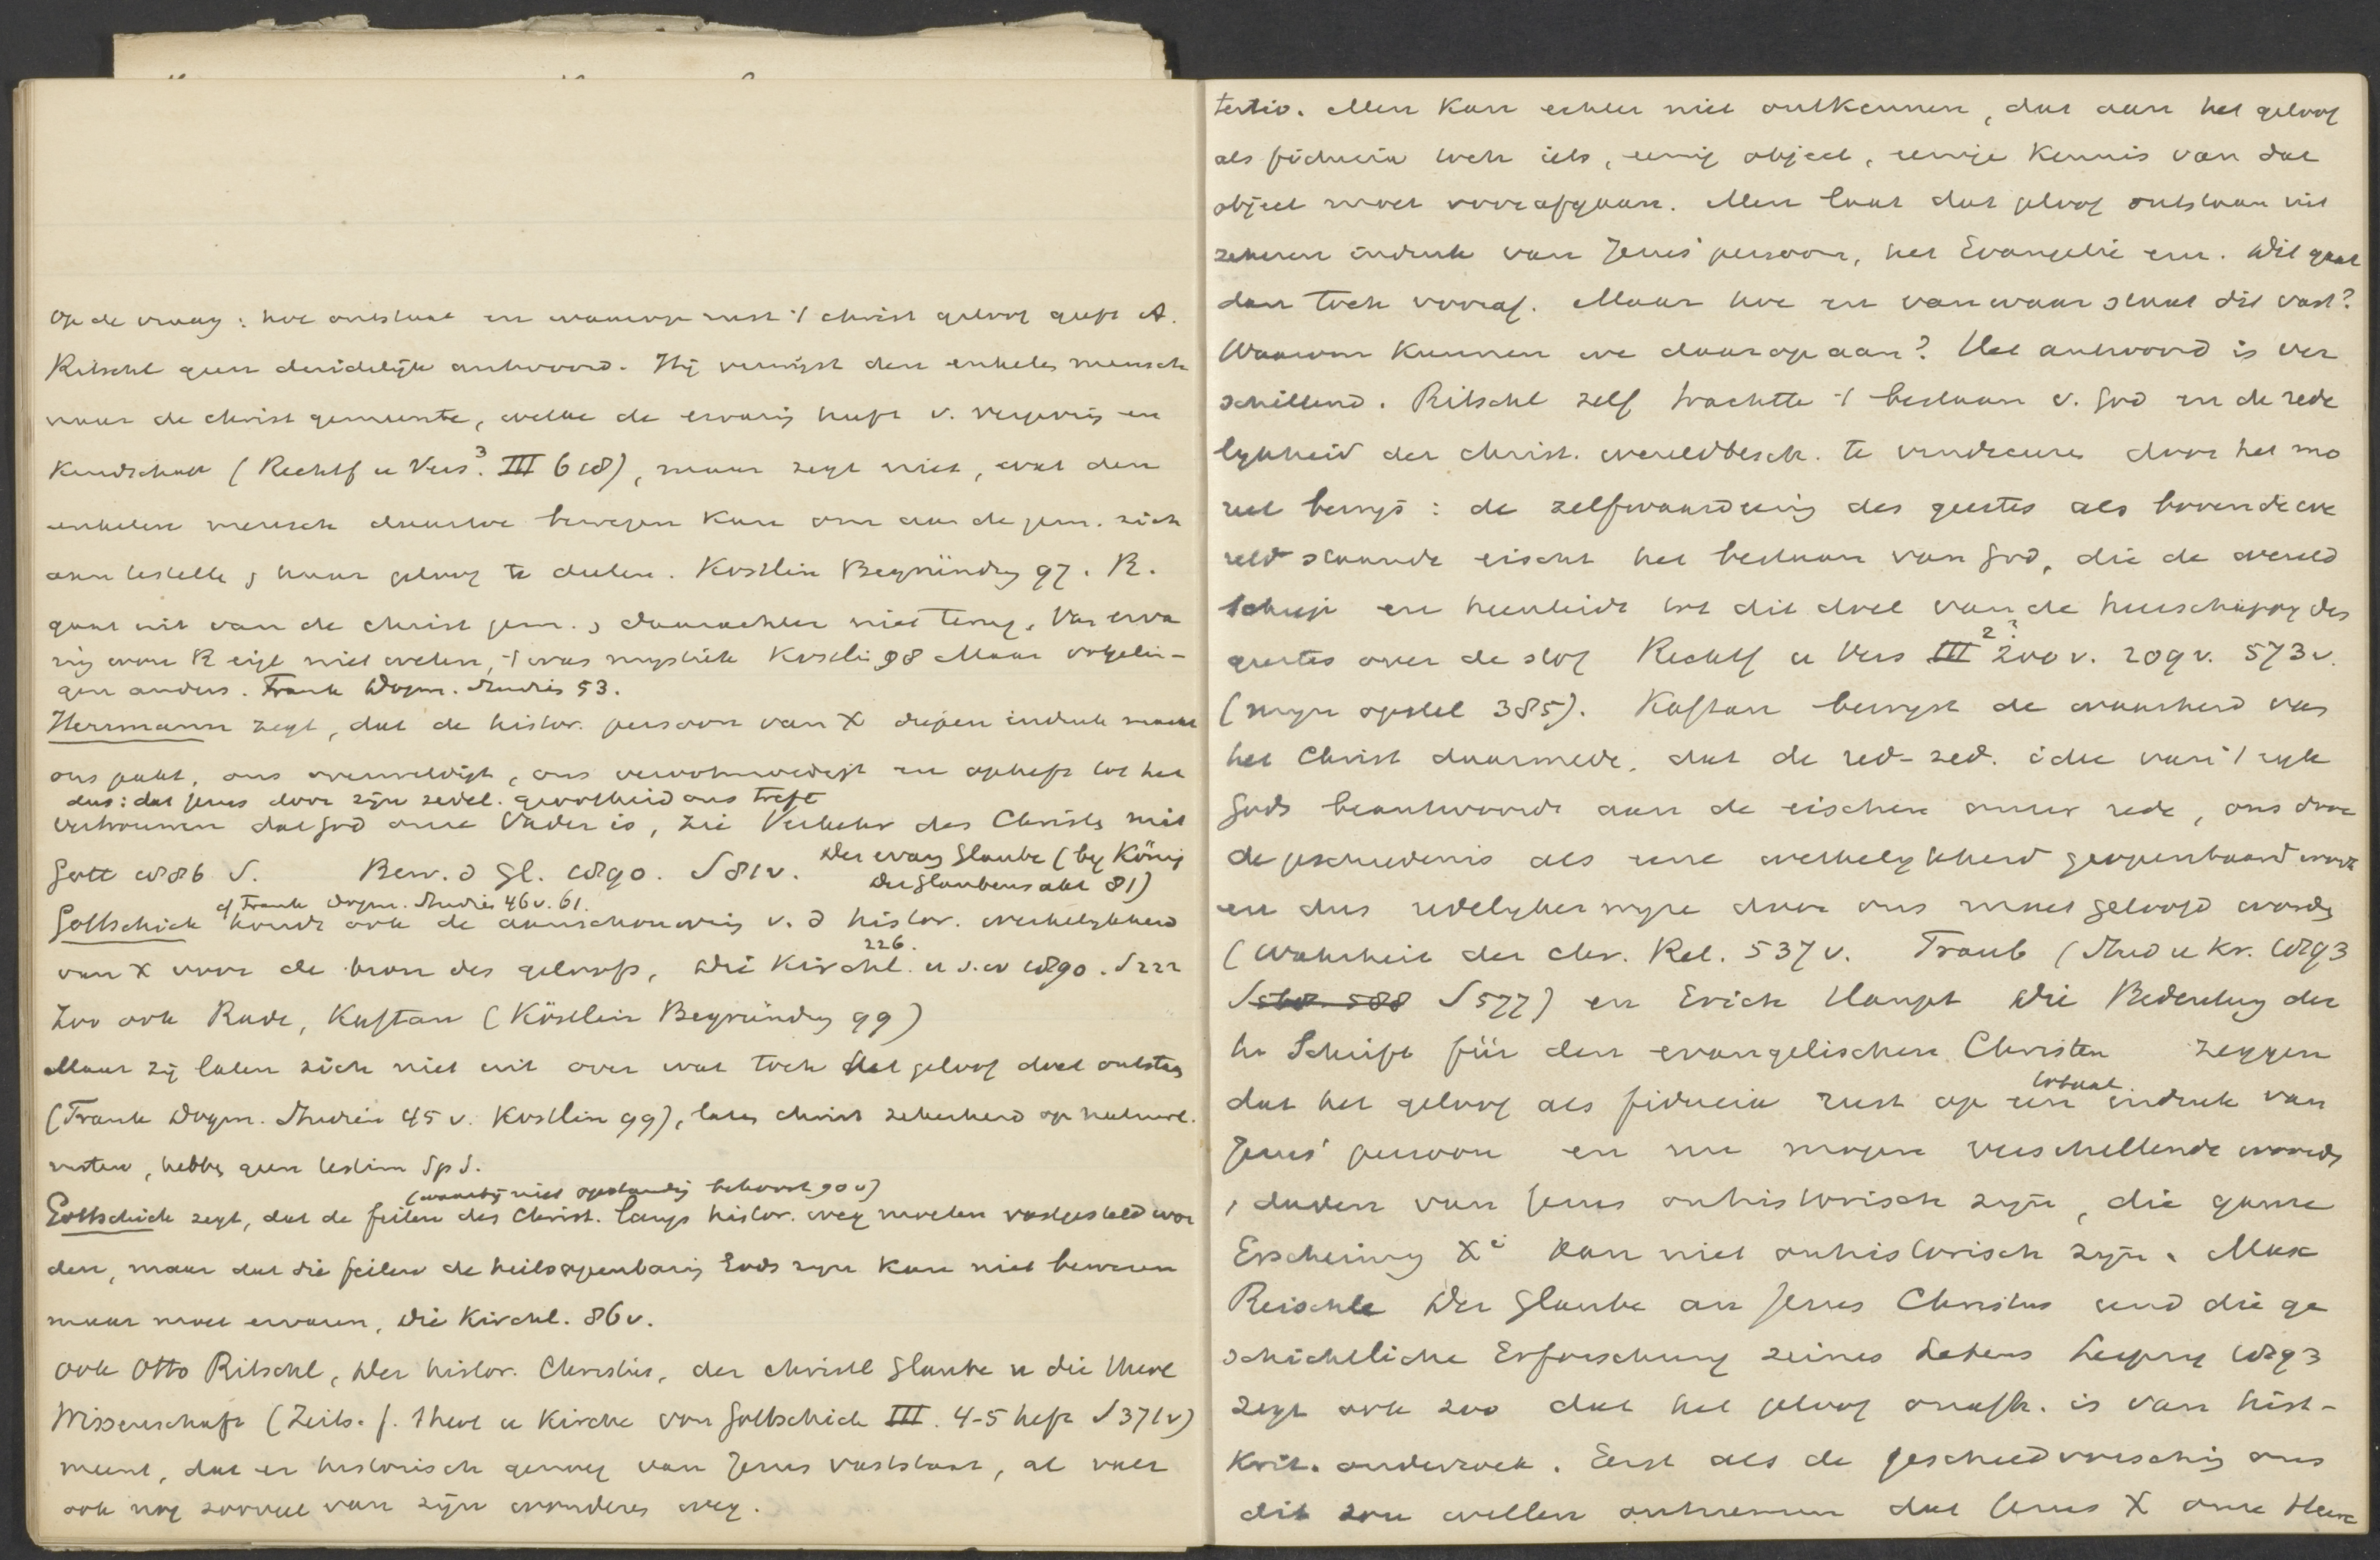 Op de vraag: hoe ontstaat en waarop rust 't christ geloof geeft A.
Ritschl geen duidelijk antwoord. Hij verwijst den enkelen mensch
naar de christ gemeente, welke de ervaring heeft v. vergeving en
Kindschap (Rechtf u Vers.³ III 618), maar zegt niet, wat den
enkelen mensch daartoe bewegen kan om aan de gem. zich
aan te haar geloof te deelen. Köstlin Begründung 97. R.
gaat uit van de christ gem., daarachter niet terug. Van erva
ring wou R eigl niet weten, 't was mystiek Köstlin 98 Maar volgelin-
gen anders. Frank Dogm. Studien 53.
Herrmann zegt, dat de histor. persoon van X diepen indruk maakt
ons pakt, ons overweldigt, ons verootmoedigt en opheft tot het
dus: dat Jezus door zijn zedel. grootheid ons treft
vertrouwen dat God onze Vader is, zie Verkehr des Christen mit
Gott 1886 S. Bew. d Gl. 1890. S 81v. Der evang Glaube (bij König
Der Glaubensakt 81)
cf Frank Dogm. Studien 46 v. 61.
Gottschick houdt ook de aanschouwing v. d histor. werkelijkheid
226.
van X voor de bron des geloofs, Die Kirchl. u.s.w 1890. S 222
Zoo ook Rade, Kaftan (Köstlin Begründung 99)
Maar zij laten zich niet uit over wat toch het geloof doet ontstaan
(Frank Dogm. Studien 45 v. Köstlin 99), laten christ zekerheid op natuurl.
rusten, hebben geen testim Sp S.
(waarbij niet opstanding behoort 90v)
Gottschick zegt, dat de feiten des Christ. langs histor. weg moeten vastgesteld wor
den, maar dat die feiten de heilsopenbaring Gods zijn kan niet bewezen
maar moet ervaren, Die Kirchl. 86 v.
Ook Otto Ritschl, Der histor. Christus, der christl Glaube u die theol
Wissenschaft (Zeits. f. Theol u Kirche von Gottschick III. 4-5 heft S 371v)
meent, dat er historisch genoeg van Jezus vaststaat, al valt
ook nog zooveel van zijn wonderen weg.
tertio. Men kan echter niet ontkennen, dat aan het geloof
als fiducia toch iets, eenig object, eenige kennis van dat
object moet voorafgaan. Men laat dat geloof ontstaan uit
zekeren indruk van Jezus' persoon, het Evangelie enz. Dit gaat
dan toch vooraf. Maar hoe en van waar staat dit vast?
Waarom kunnen we daarop aan? Het antwoord is ver
schillend. Ritschl zelf trachtte 't bestaan v. God en de rede
lijkheid der christ. wereldbesch. te vindiceeren door het mo
reel bewijs: de zelfwaardeering des geestes als boven de we
reld staande eischt het bestaan van God, die de wereld
schiep en heenleidt tot dit doel van de heerschappij des
geestes over de stof Rechtf u Vers III² 200 v. 209 v. 573 v.
(mijn opstel 385). Kaftan bewijst de waarheid van
het Christ daarmede, dat de red-zed. idee van 't rijk
Gods beantwoordt aan de eischen onzer rede, ons door
de geschiedenis als eene werkelijkheid geopenbaard wordt
en dus redelijkerwijze door ons moet geloofd worden
(Wahrheit der chr. Rel. 537 v. Traub (Stud u Kr. 1893
S 577) en Erich Haupt Die Bedeutung der
h. Schrift für den evangelischen Christen zeggen
totaal
dat het geloof als fiducia rust op een indruk van
Jezus' persoon en nu mogen verschillende woorden
, daden van Jezus onhistorisch zijn, die ganze
Erscheinung Xⁱ kan niet onhistorisch zijn. Max
Reischle Der Glaube an Jesus Christus und die ge
schichtliche Erforschung seines Lebens Leipzig 1893
zegt ook zoo dat het geloof onafh. is van hist-
krit. onderzoek. Eerst als de geschiedvorsching ons
dit zou willen ontnemen dat Jezus X onze Heere